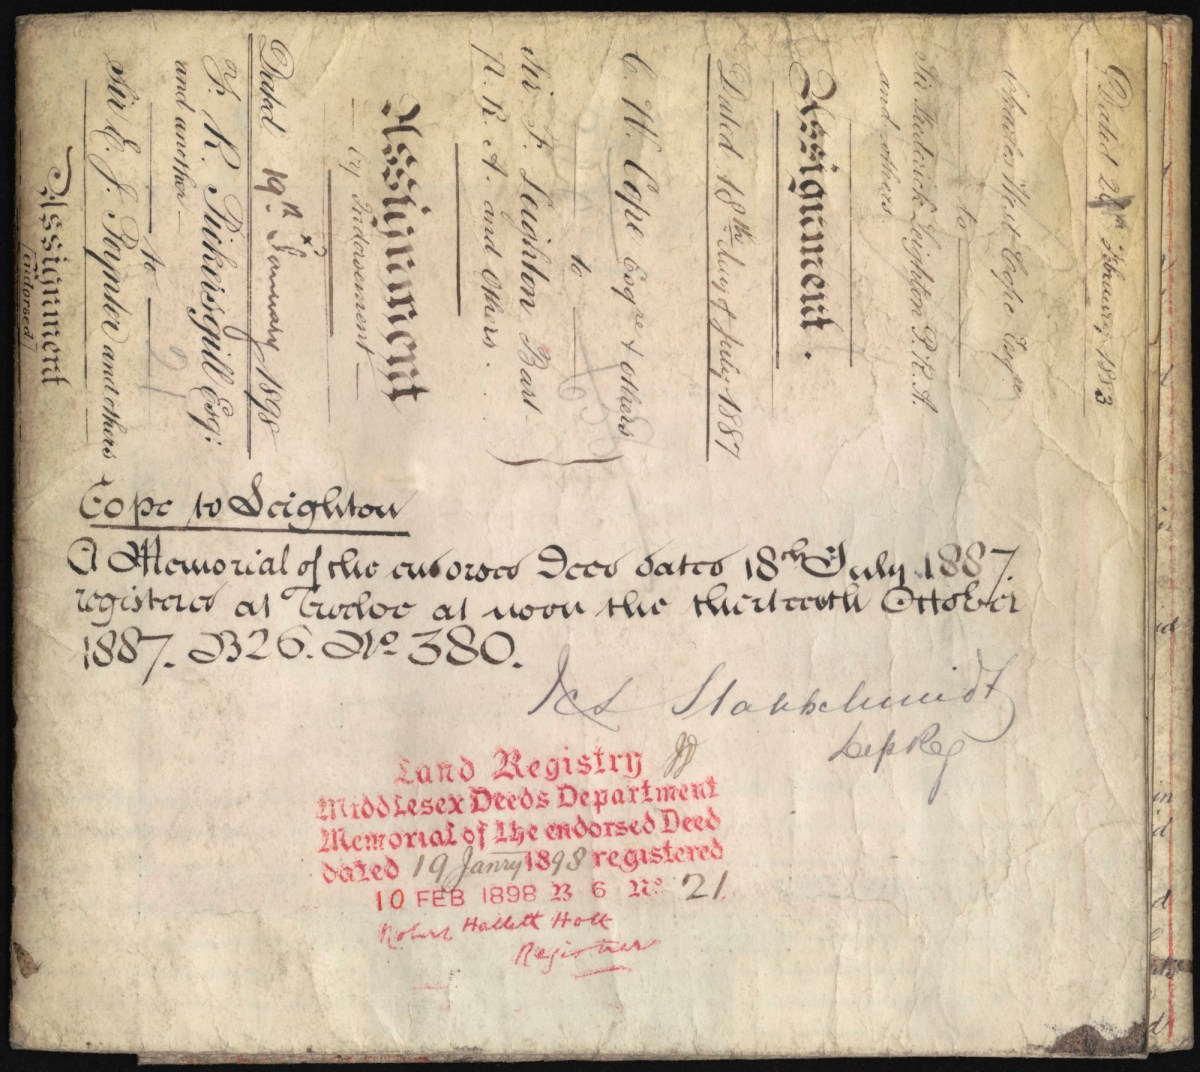 Dated 28th February 1883
Charles West Cope Esqre
to
Sir Frederick Leighton P.R.A
and others
Assignment.
Dated 18th day of July 1887
C. W. Cope Esqre & others
to
Sir F. Leighton Bart
P. R. A. and Others.
Assignment
by Indorsement
Dated 19th January 1898
F. R. Pickersgill Esq:
and another
to
21
Sir E. J. Poynter and others
Assignment
(endorsed)
Cope to Leighton
A Memorial of the endorsed Deed dated 18th July 1887.
registered at Twelve at noon the thirteenth October
1887. B26. No. 380.
Stabbschmidt
Dep Reg
Land Registry
Middlesex Deeds Department
Memorial of the endorsed Deed
dated 19 Janry 1898 registered
10 FEB 1898 B 6 No 21
Robert Hallett Holt
Registrar